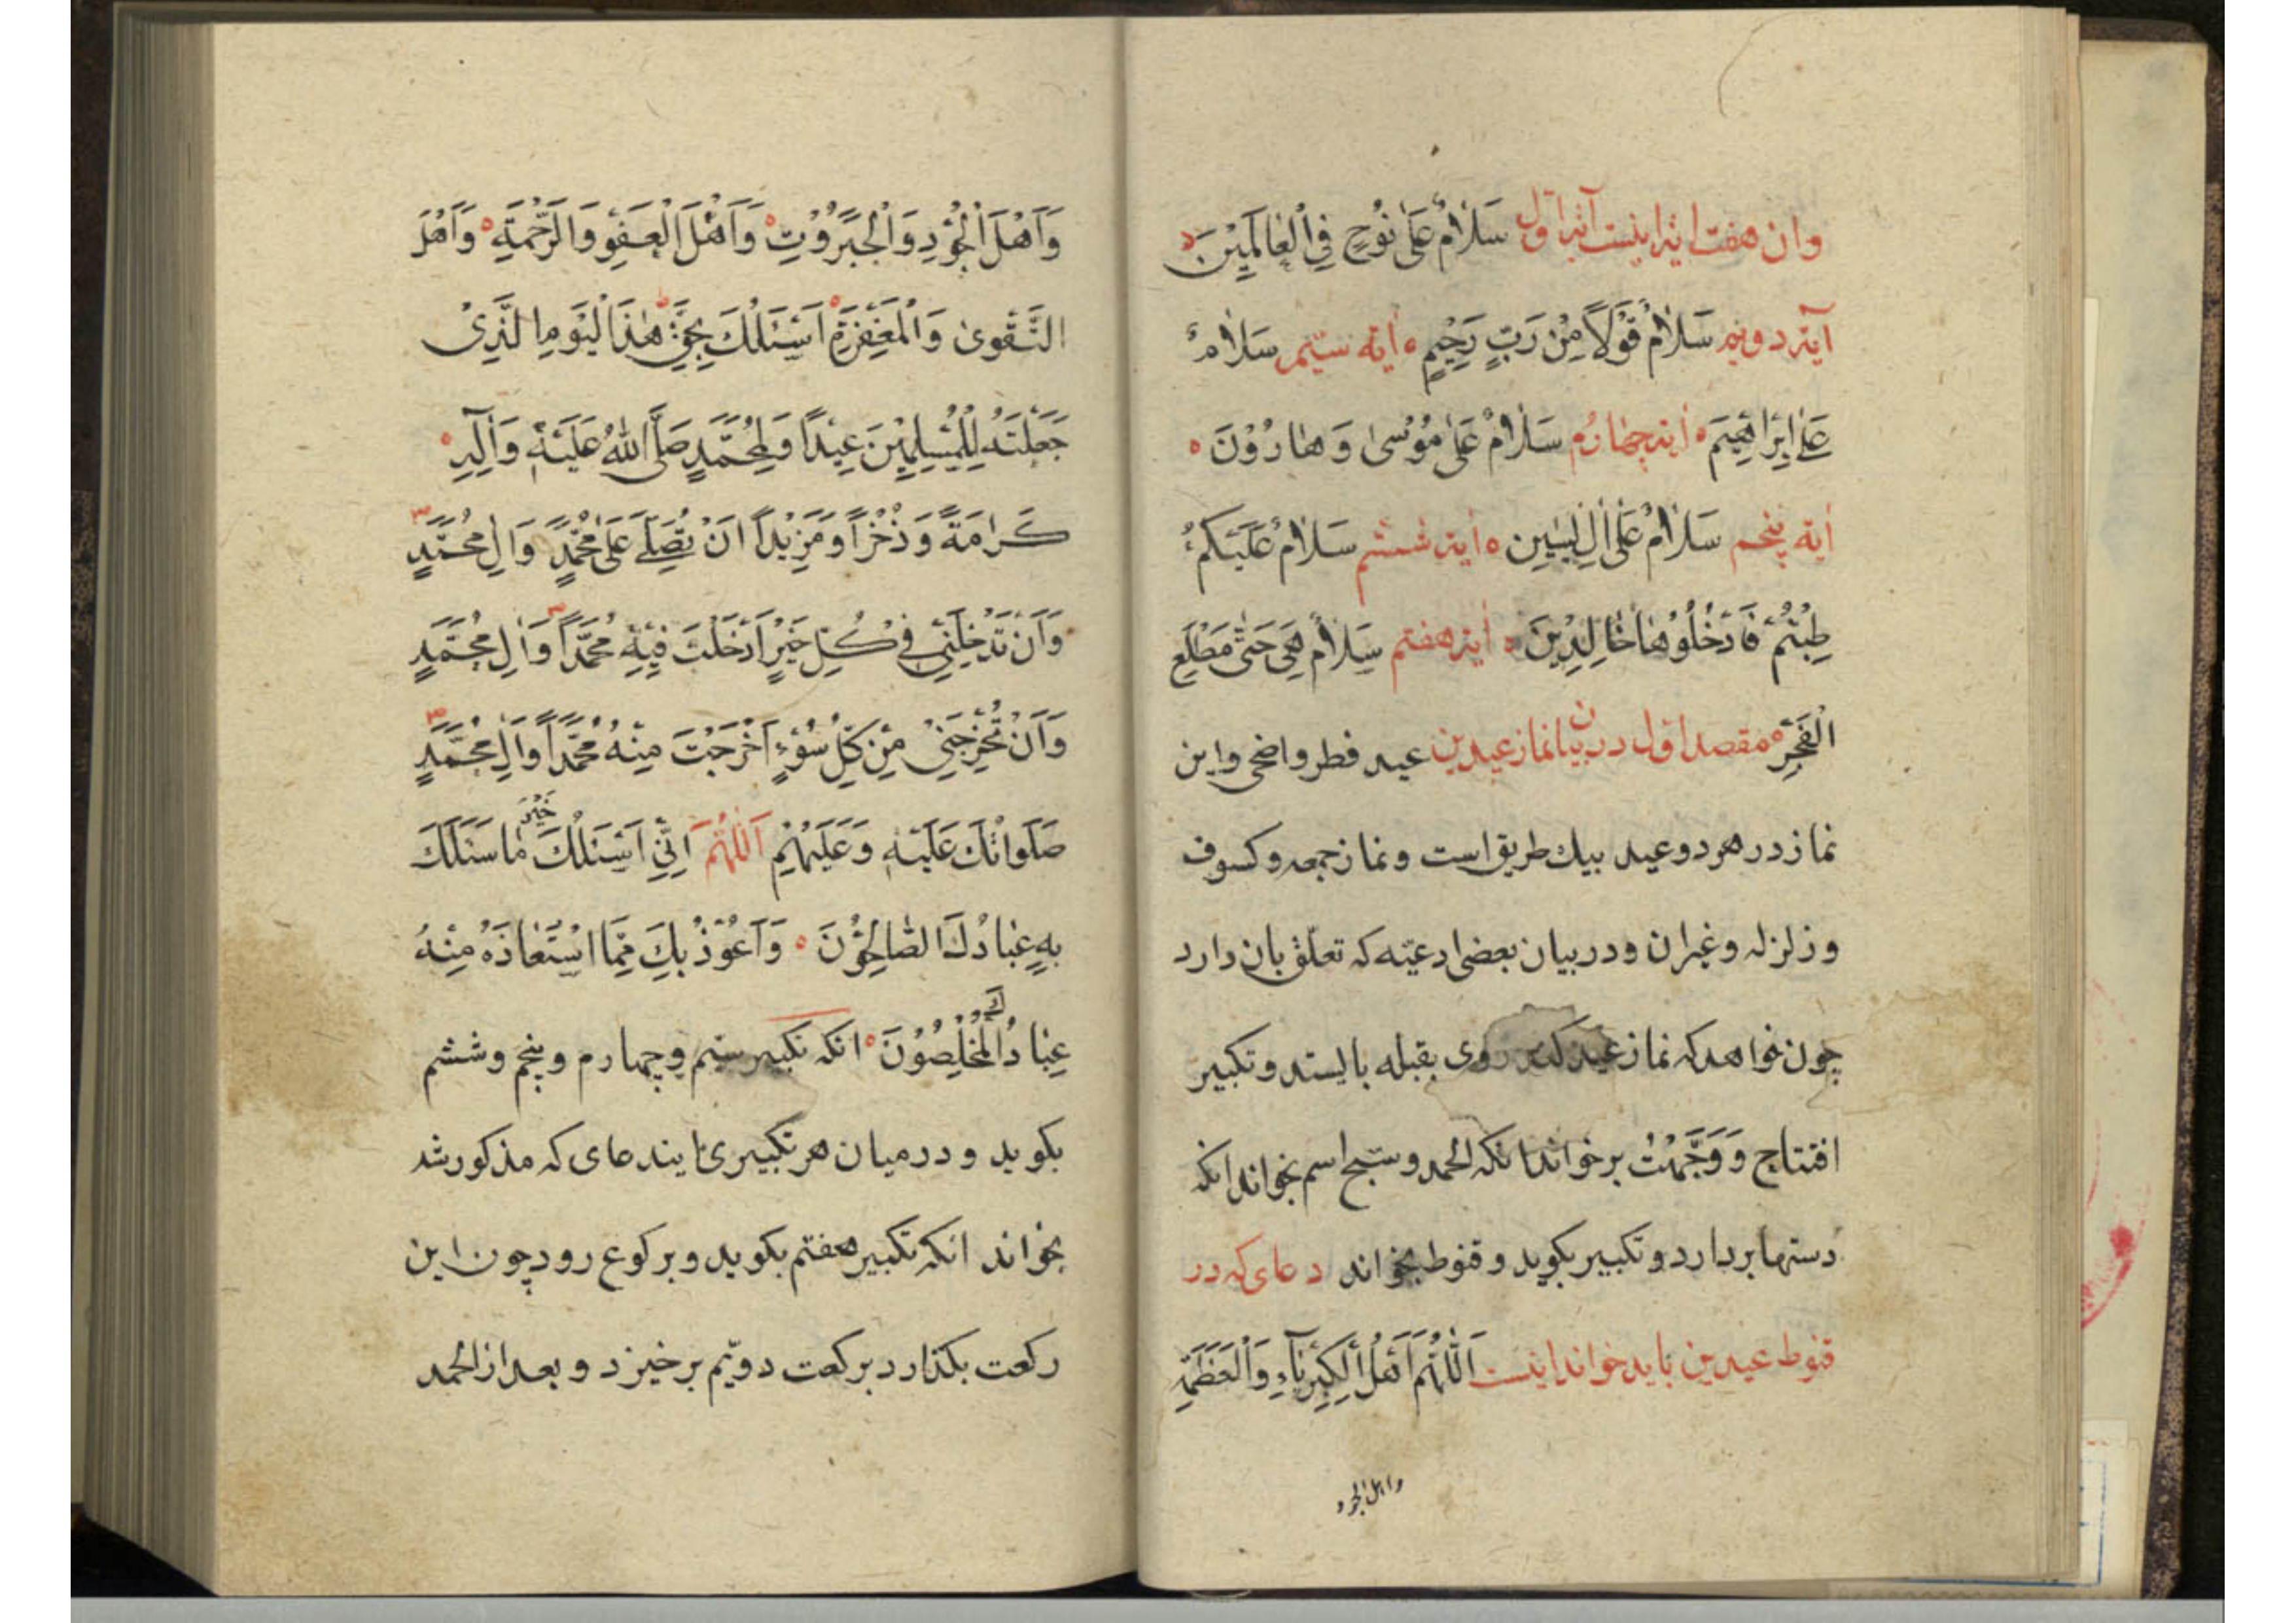 وان هفت ایه اینست آیه اول سَلَامٌ عَلَىٰ نُوْحٍ فِي الْعَالَمِيْنَ
آیه دویم سَلَامٌ قَوْلًا مِنْ رَبٍّ رَحِيْمٍ ایه سیم سَلَامٌ
عَلَىٰ اِبْرَاهِيْمَ ایه چهارم سَلَامٌ عَلَىٰ مُوْسىٰ وَهَارُوْنَ
ایه پنجم سَلَامٌ عَلَىٰ اٰلِ يٰسِين ایه ششم سَلَامٌ عَلَيْكُمْ
طِبْتُمْ فَادْخُلُوْهَا خَالِدِيْنَ ایه هفتم سَلَامٌ هِيَ حَتّٰى مَطْلَعِ
الْفَجْرِ مقصد اول در بیان نماز عیدین عید فطر واضحی واین
نماز در هر دو عید بیك طریق است ونماز جمعه وکسوف
وزلزله وغیران ودر بیان بعضی ادعیّه که تعلّق بان دارد
چون خواهد که نماز عید کند روی بقبله بایستد وتکبیر
افتتاح وَوَجَّهْتُ برخواند انکه الحمد وسبّح اسم بخواند انکه
دستها بردارد وتکبیر بکوید وقنوط بخواند دعای که در
قنوط عیدین باید خواند اینست اَللّٰهُمَّ اَهْلَ الْكِبْرِيَاۤءِ وَالْعَظَمَةِ
واهل الجود
وَاَهْلَ الْجُوْدِ وَالْجَبَرُوْتِ وَاَهْلَ الْعَفْوِ وَالرَّحْمَةِ وَاَهْلَ
التَّقْوىٰ وَالْمَغْفِرَةِ اَسْئَلُكَ بِحَقِّ هٰذَا لْيَوْمِ الَّذِىْ
جَعَلْتَهُ لِلْمُسْلِمِيْنَ عِيْدًا وَلِمُحَمَّدٍ صَلَّى اللهُ عَلَيْهِ وَاٰلِهِ
كَرَامَةً وَذُخْرًا وَمَزِيْدًا اَنْ تُصَلِّىَ عَلىٰ مُحَمَّدٍ وَاٰلِ مُحَمَّدٍ
وَاَنْ تُدْخِلَنِيْ فِيْ كُلِّ خَيْرٍ اَدْخَلْتَ فِيْهِ مُحَمَّدًا وَاٰلِ مُحَمَّدٍ
وَاَنْ تُخْرِجَنِيْ مِنْ كُلِّ سُوْءٍ اَخْرَجْتَ مِنْهُ مُحَمَّدًا وَاٰلِ مُحَمَّدٍ
صَلَوَاتُكَ عَلَيْهِ وَعَلَيْهِمْ اَللّٰهُمَّ اِنِّيْ اَسْئَلُكَ خَيْرَ مَا سَئَلَكَ
بِهٖ عِبَادُكَ الصَّالِحُوْنَ وَاَعُوْذُ بِكَ مِمَّا اسْتَعَاذَ مِنْهُ
عِبَادُكَ الْمُخْلِصُوْنَ انکه تکبیر سیم وچهارم وپنجم وششم
بکوید ودر میان هر تکبیری ایندعای که مذکور شد
بخواند انکه تکبیر هفتم بکوید وبرکوع رود چون این
رکعت بکذارد برکعت دویّم برخیزد وبعد از الحمد